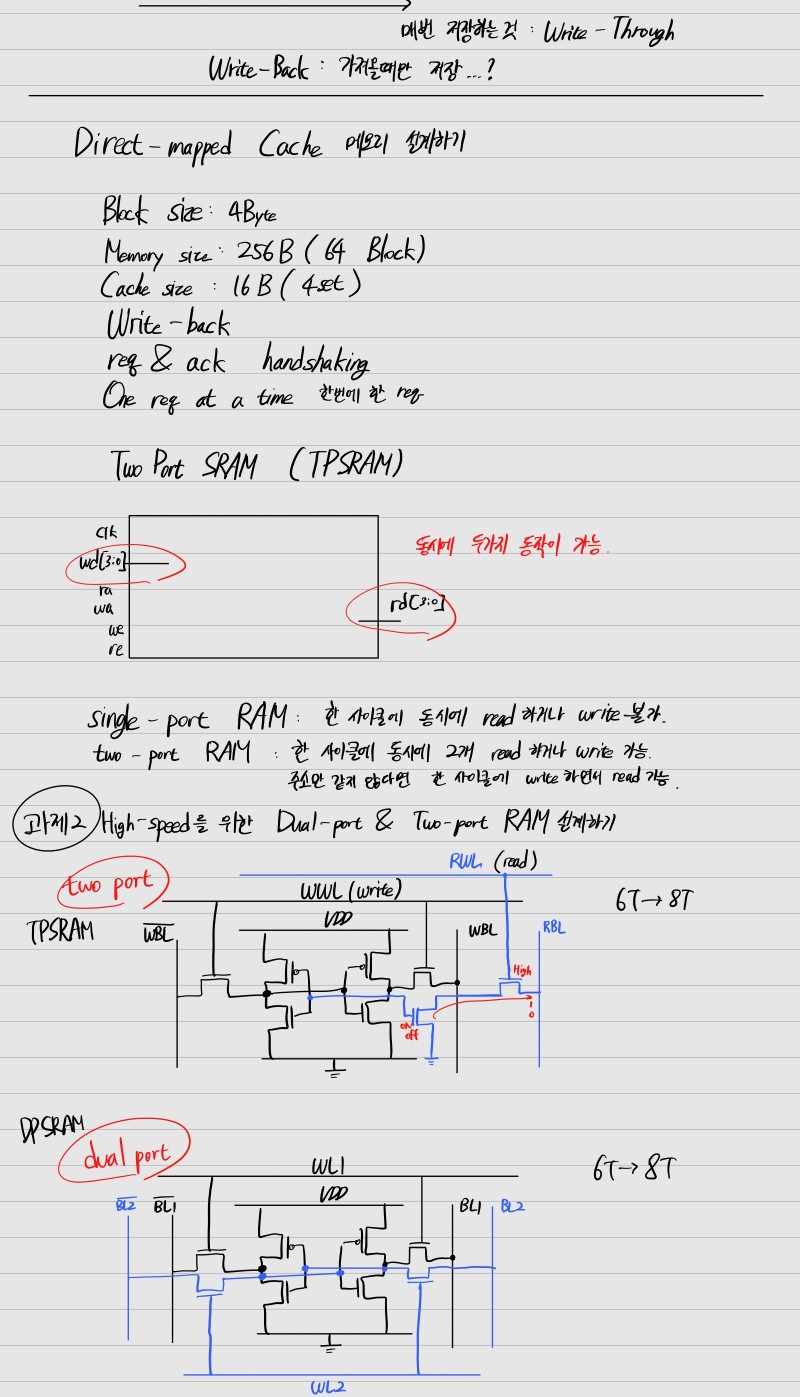 매번 저장하는 것 : Write-Through
Write-Back : 가져올때만 저장...?
Direct-mapped Cache 메모리 설계하기
Block size : 4Byte
Memory size : 256B ( 64 Block )
Cache size : 16B ( 4set )
Write-back
req & ack handshaking
One req at a time 한번에 한 req
Two Port SRAM (TPSRAM)
clk
wd[3:0]
ra
wa
we
re
rd[3:0]
동시에 두가지 동작이 가능.
single-port RAM : 한 사이클에 동시에 read 하거나 write 불가.
two-port RAM : 한 사이클에 동시에 2개 read 하거나 write 가능.
주소만 같지 않다면 한 사이클에 write 하면서 read 가능.
과제2 High-speed를 위한 Dual-port & Two-port RAM 설계하기
two port
RWL (read)
WWL (write)
6T→8T
TPSRAM
WBL
VDD
WBL
RBL
High
on
off
1
0
DPSRAM
dual port
WL1
6T→8T
BL2
BL1
VDD
BL1
BL2
WL2